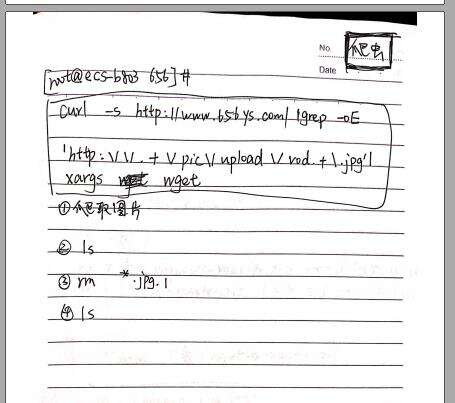 No.
爬虫
Date
[root@ecs-b803 656]#
curl -s http://www.656ys.com/ |grep -oE
'http:\/\/.+\/pic\/upload\/vod.+\.jpg'|
xargs wget
①爬取图片
② ls
③ rm *.jpg.1
④ ls